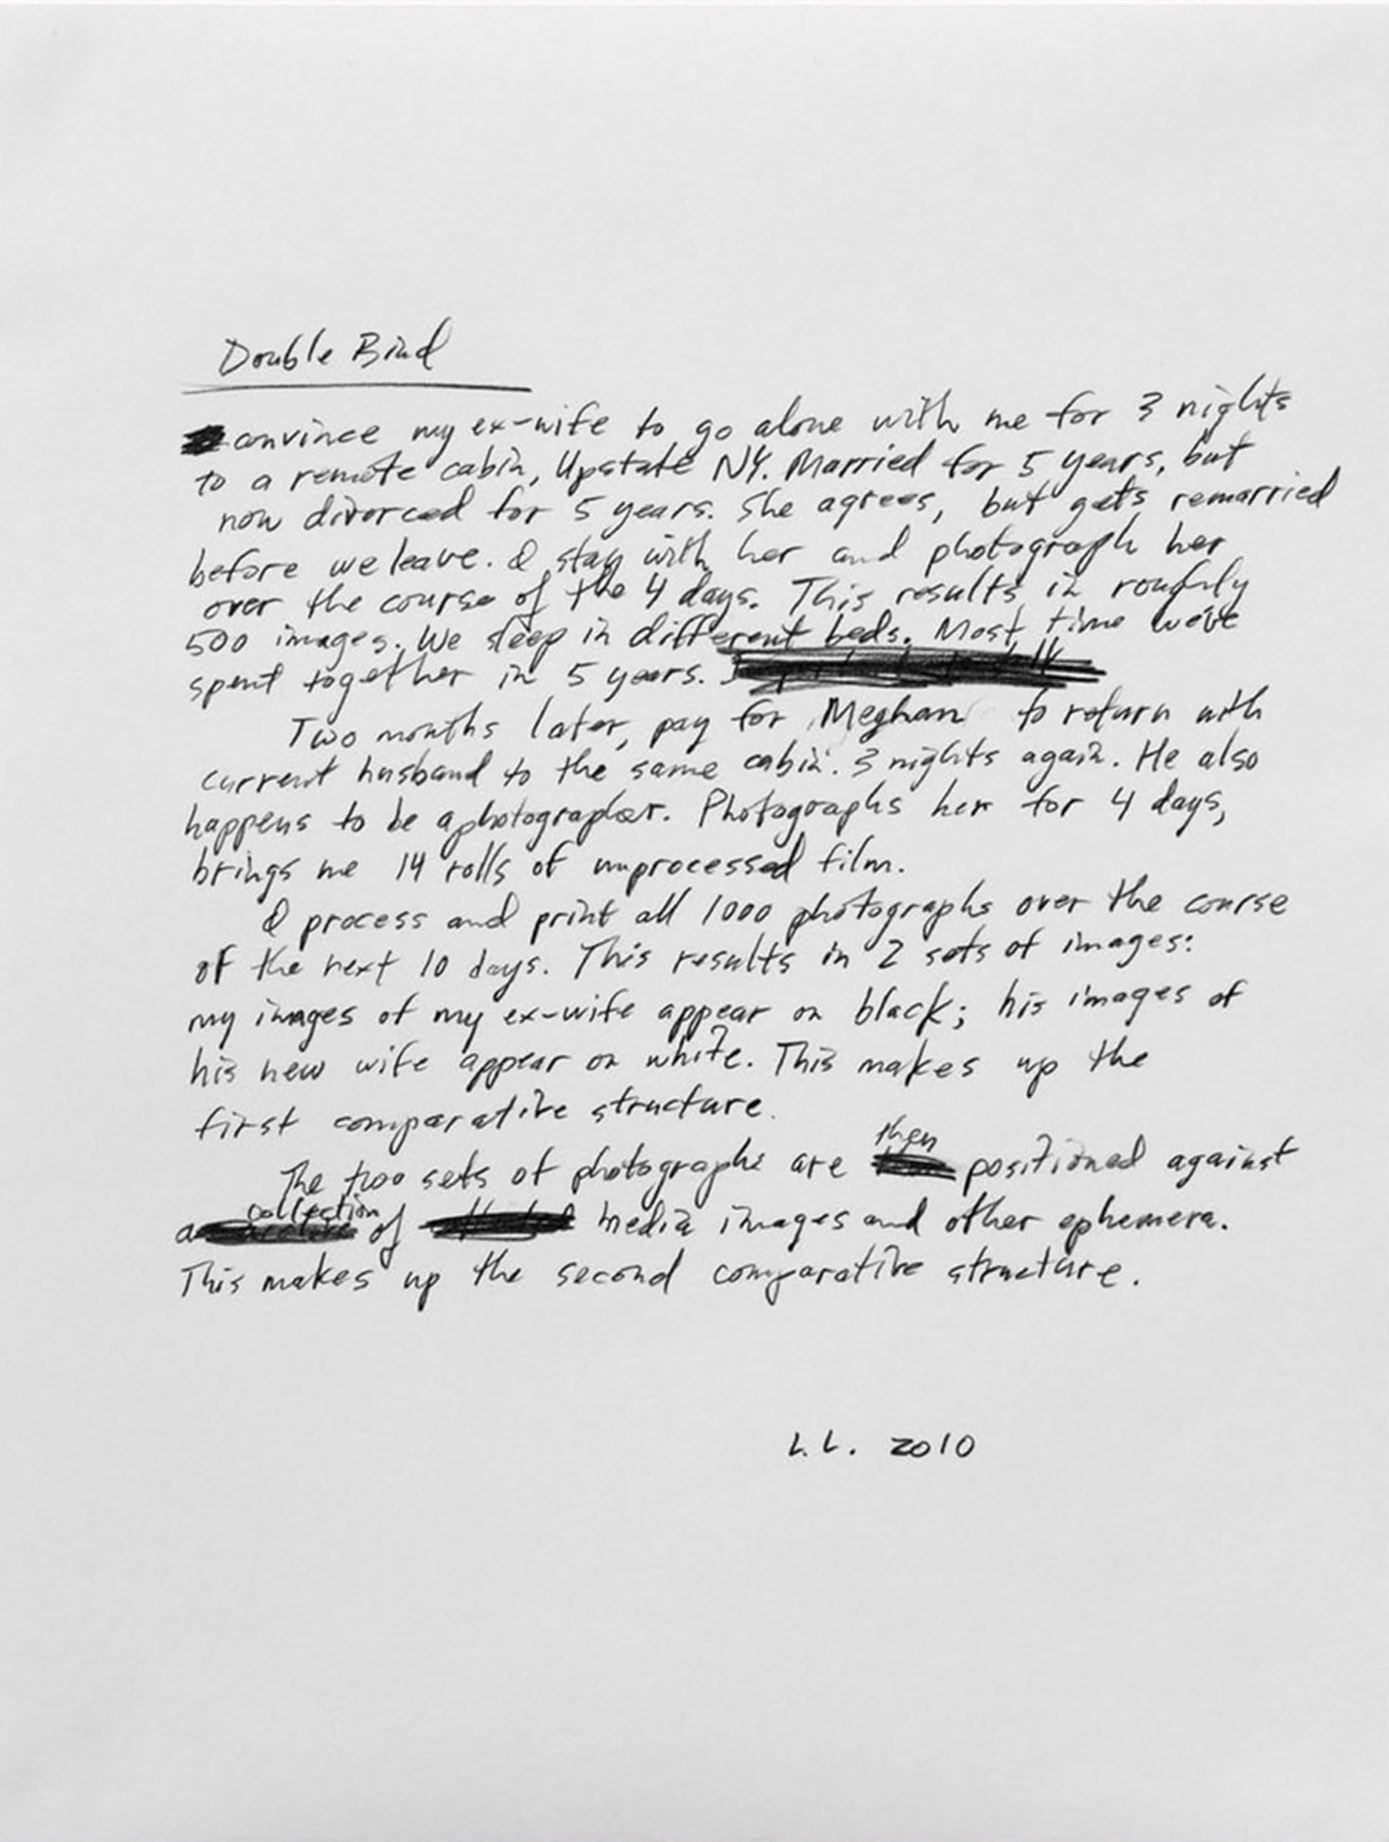 Double Bind
convince my ex-wife to go alone with me for 3 nights
to a remote cabin, Upstate NY. Married for 5 years, but
now divorced for 5 years. She agrees, but gets remarried
before we leave. I stay with her and photograph her
over the course of the 4 days. This results in roughly
500 images. We sleep in different beds. Most time we've
spent together in 5 years.
Two months later, pay for Meghan to return with
current husband to the same cabin. 3 nights again. He also
happens to be a photographer. Photographs her for 4 days,
brings me 14 rolls of unprocessed film.
I process and print all 1000 photographs over the course
of the next 10 days. This results in 2 sets of images:
my images of my ex-wife appear on black; his images of
his new wife appear on white. This makes up the
first comparative structure.
The two sets of photographs are then positioned against
a collection of media images and other ephemera.
This makes up the second comparative structure.
L.L. 2010